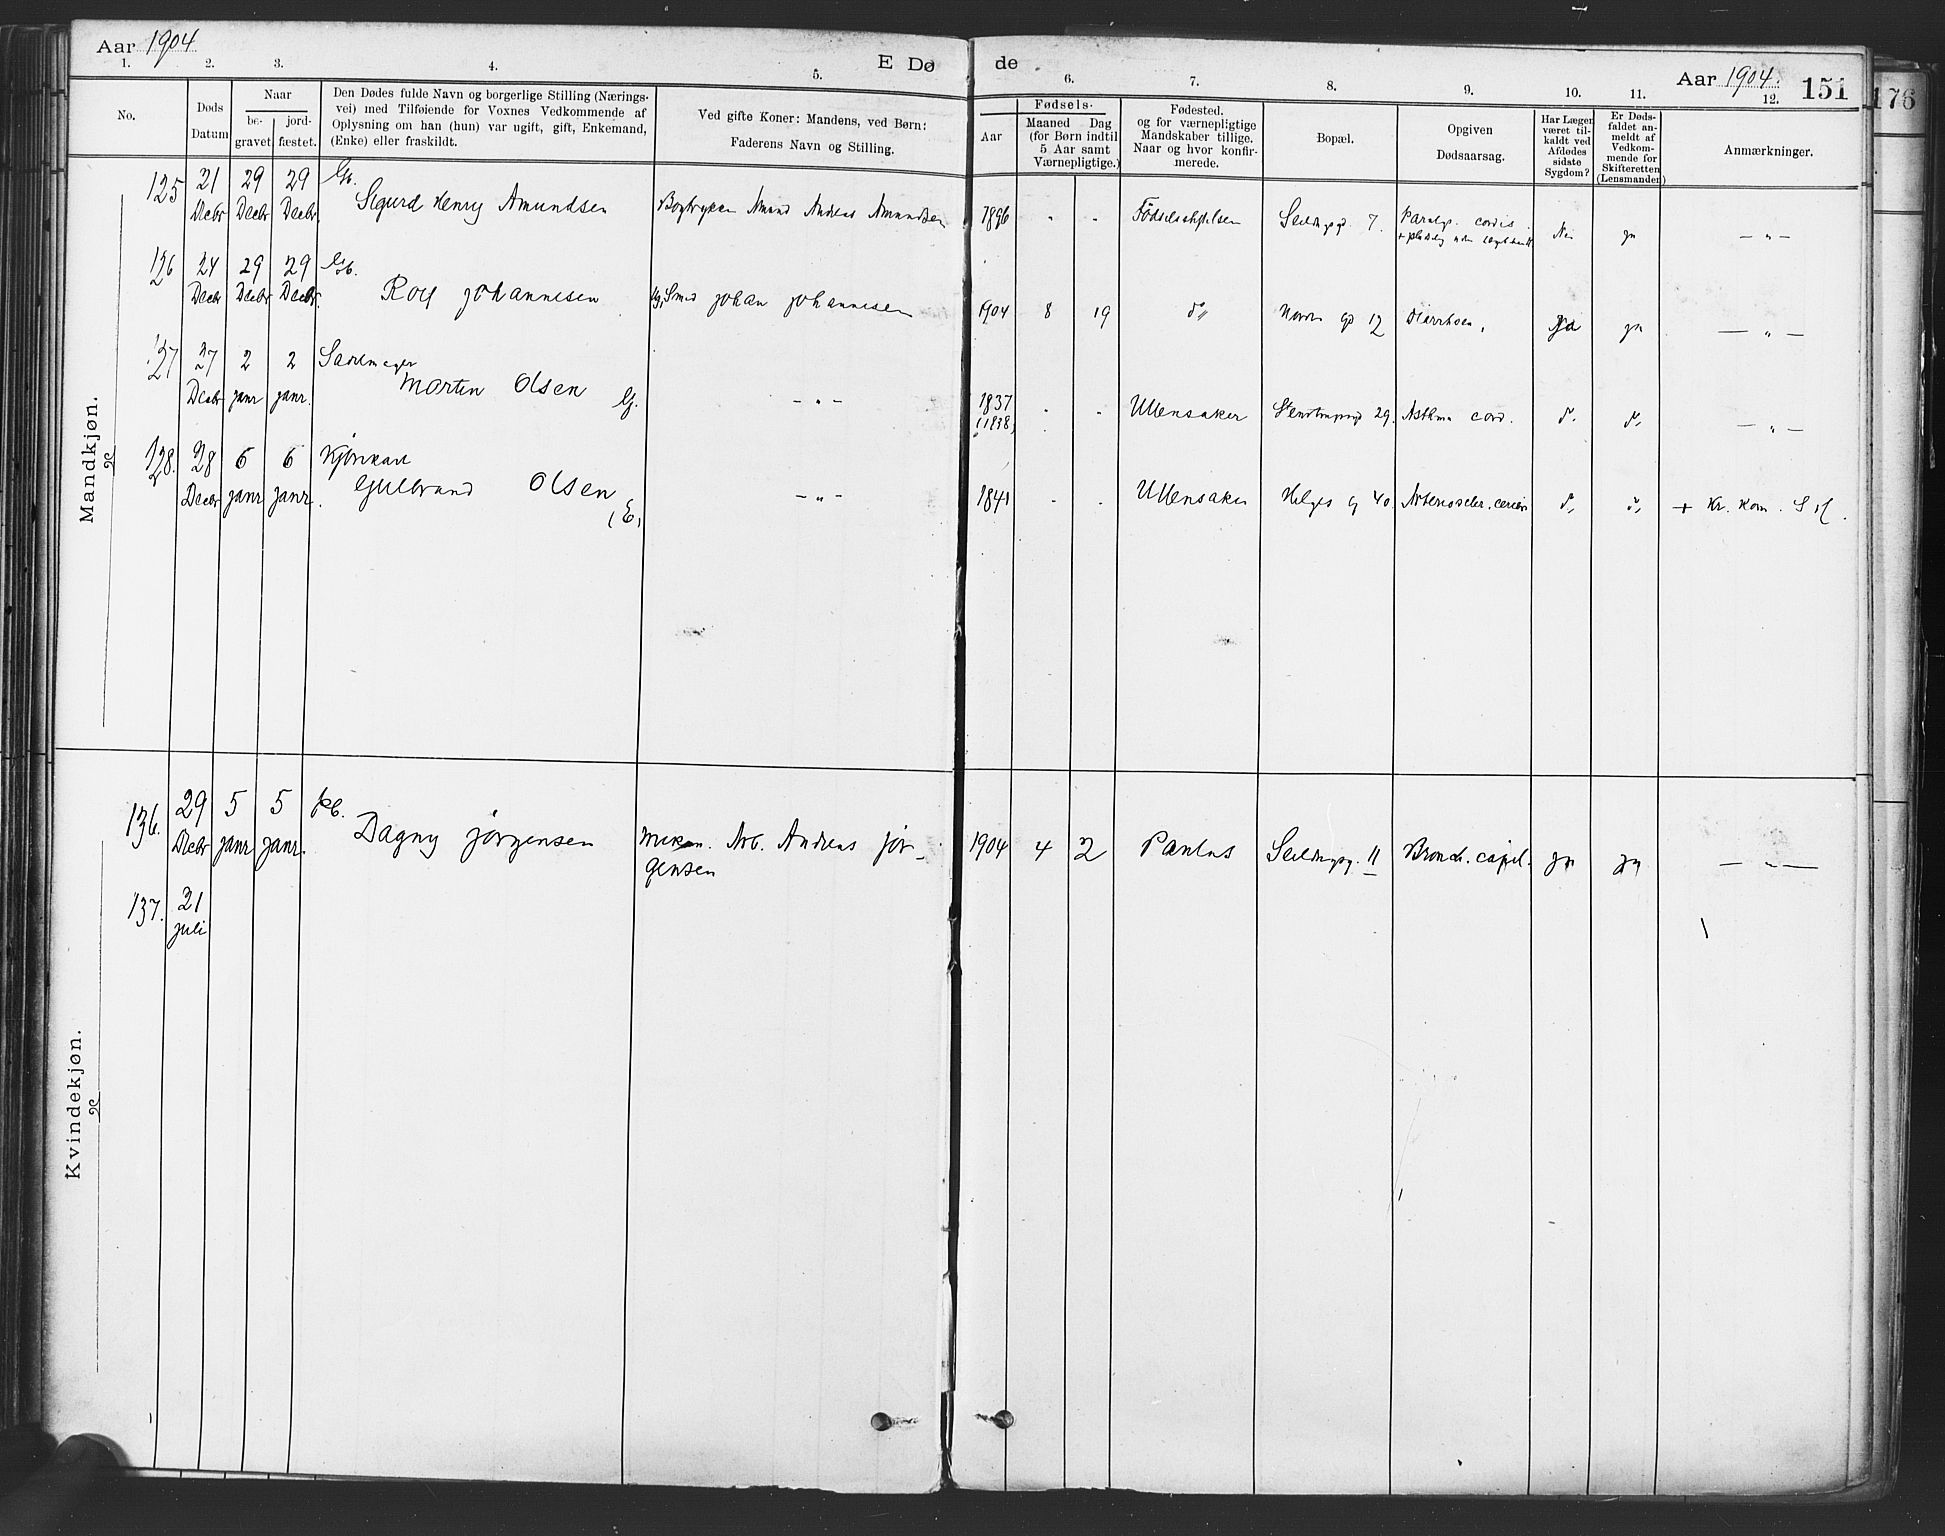 Aar 1904
E Dø
de
Aar 1904.
151
176
1. 2. 3. 4. 5. 6. 7. 8. 9. 10. 11. 12.
No.
Døds
Datum
Naar
be-
gravet
jord-
fæstet.
Den Dødes fulde Navn og borgerlige Stilling (Nærings-
vei) med Tilføiende for Voxnes Vedkommende af
Oplysning om han (hun) var ugift, gift, Enkemand,
(Enke) eller fraskildt.
Ved gifte Koner: Mandens, ved Børn:
Faderens Navn og Stilling.
Fødsels-
Aar
Maaned Dag
(for Børn indtil
5 Aar samt
Værnepligtige.)
Fødested.
og for værnepligtige
Mandskaber tillige.
Naar og hvor konfir-
merede.
Bopæl.
Opgiven
Dødsaarsag.
Har Lægen
været til-
kaldt ved
Afdødes
sidste
Sygdom?
Er Døds-
faldet an-
meldt af
Vedkom-
mende for
Skifteretten
(Lensmanden)
Anmærkninger.
Mandkjøn.
125 21 29 29 Gb.
Decbr Decbr Decbr. Sigurd Henry Amundsen Bogtrykker Amund Andreas Amundsen 1896 " " Fødselsstiftelsen 7. Paralys. cordis. Nei ja — " —
126 24 29 29 Gb.
Decbr Decbr Decbr. Rolf Johannesen Smed Johan Johannesen 1904 8 19 d" gd 12 Diarrhoea, Ja ja — " —
127 27 2 2 Sadelmager
Decbr janr janr. Morten Olsen G. — " — 1837 " " Ullensaker 29. Asthma cord. d. d. — " —
(1838)
128. 28 6 6 Kjørekarl
Decbr janr janr. Gulbrand Olsen — " — 1841 " " Ullensaker Helges g 40. d. d. + Kr. Kom. S H.
(E,
Kvindekjøn.
136. 29 5 5
Decbr janr janr. Dagny Jørgensen Mekan. Arb. Andreas Jør-
gensen
1904 4 2 Paulus 11 Bronch. capil. ja ja — " —
137. 21
juli